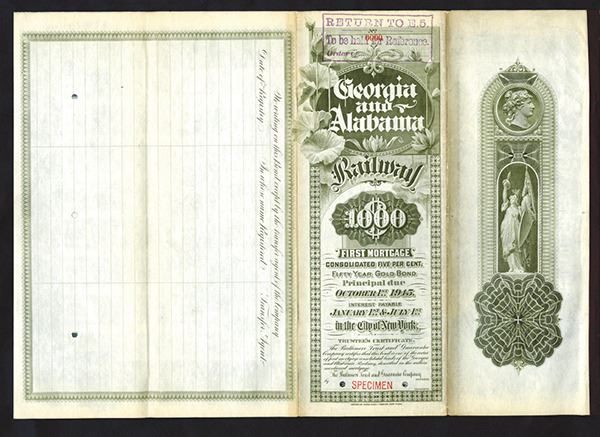 No writing on this Bond except by the transfer agent of the Company
Date of Registry.
In whose name Registered.
Transfer Agent.
RETURN TO E.5.
0000
To be held for Reference.
Order
Georgia
and
Alabama
Railway
$1000
FIRST MORTGAGE
CONSOLIDATED FIVE PER CENT,
FIFTY YEAR GOLD BOND.
Principal due
OCTOBER 1st 1945.
INTEREST PAYABLE
JANUARY 1st & JULY 1st
in the City of New York.
TRUSTEE'S CERTIFICATE.
The Baltimore Trust and Guarantee
Company certifies that this bond is one of the series
of first mortgage consolidated bonds of the Georgia
and Alabama Railway, described in the within
mentioned mortgage.
The Baltimore Trust and Guarantee Company
by
SPECIMEN